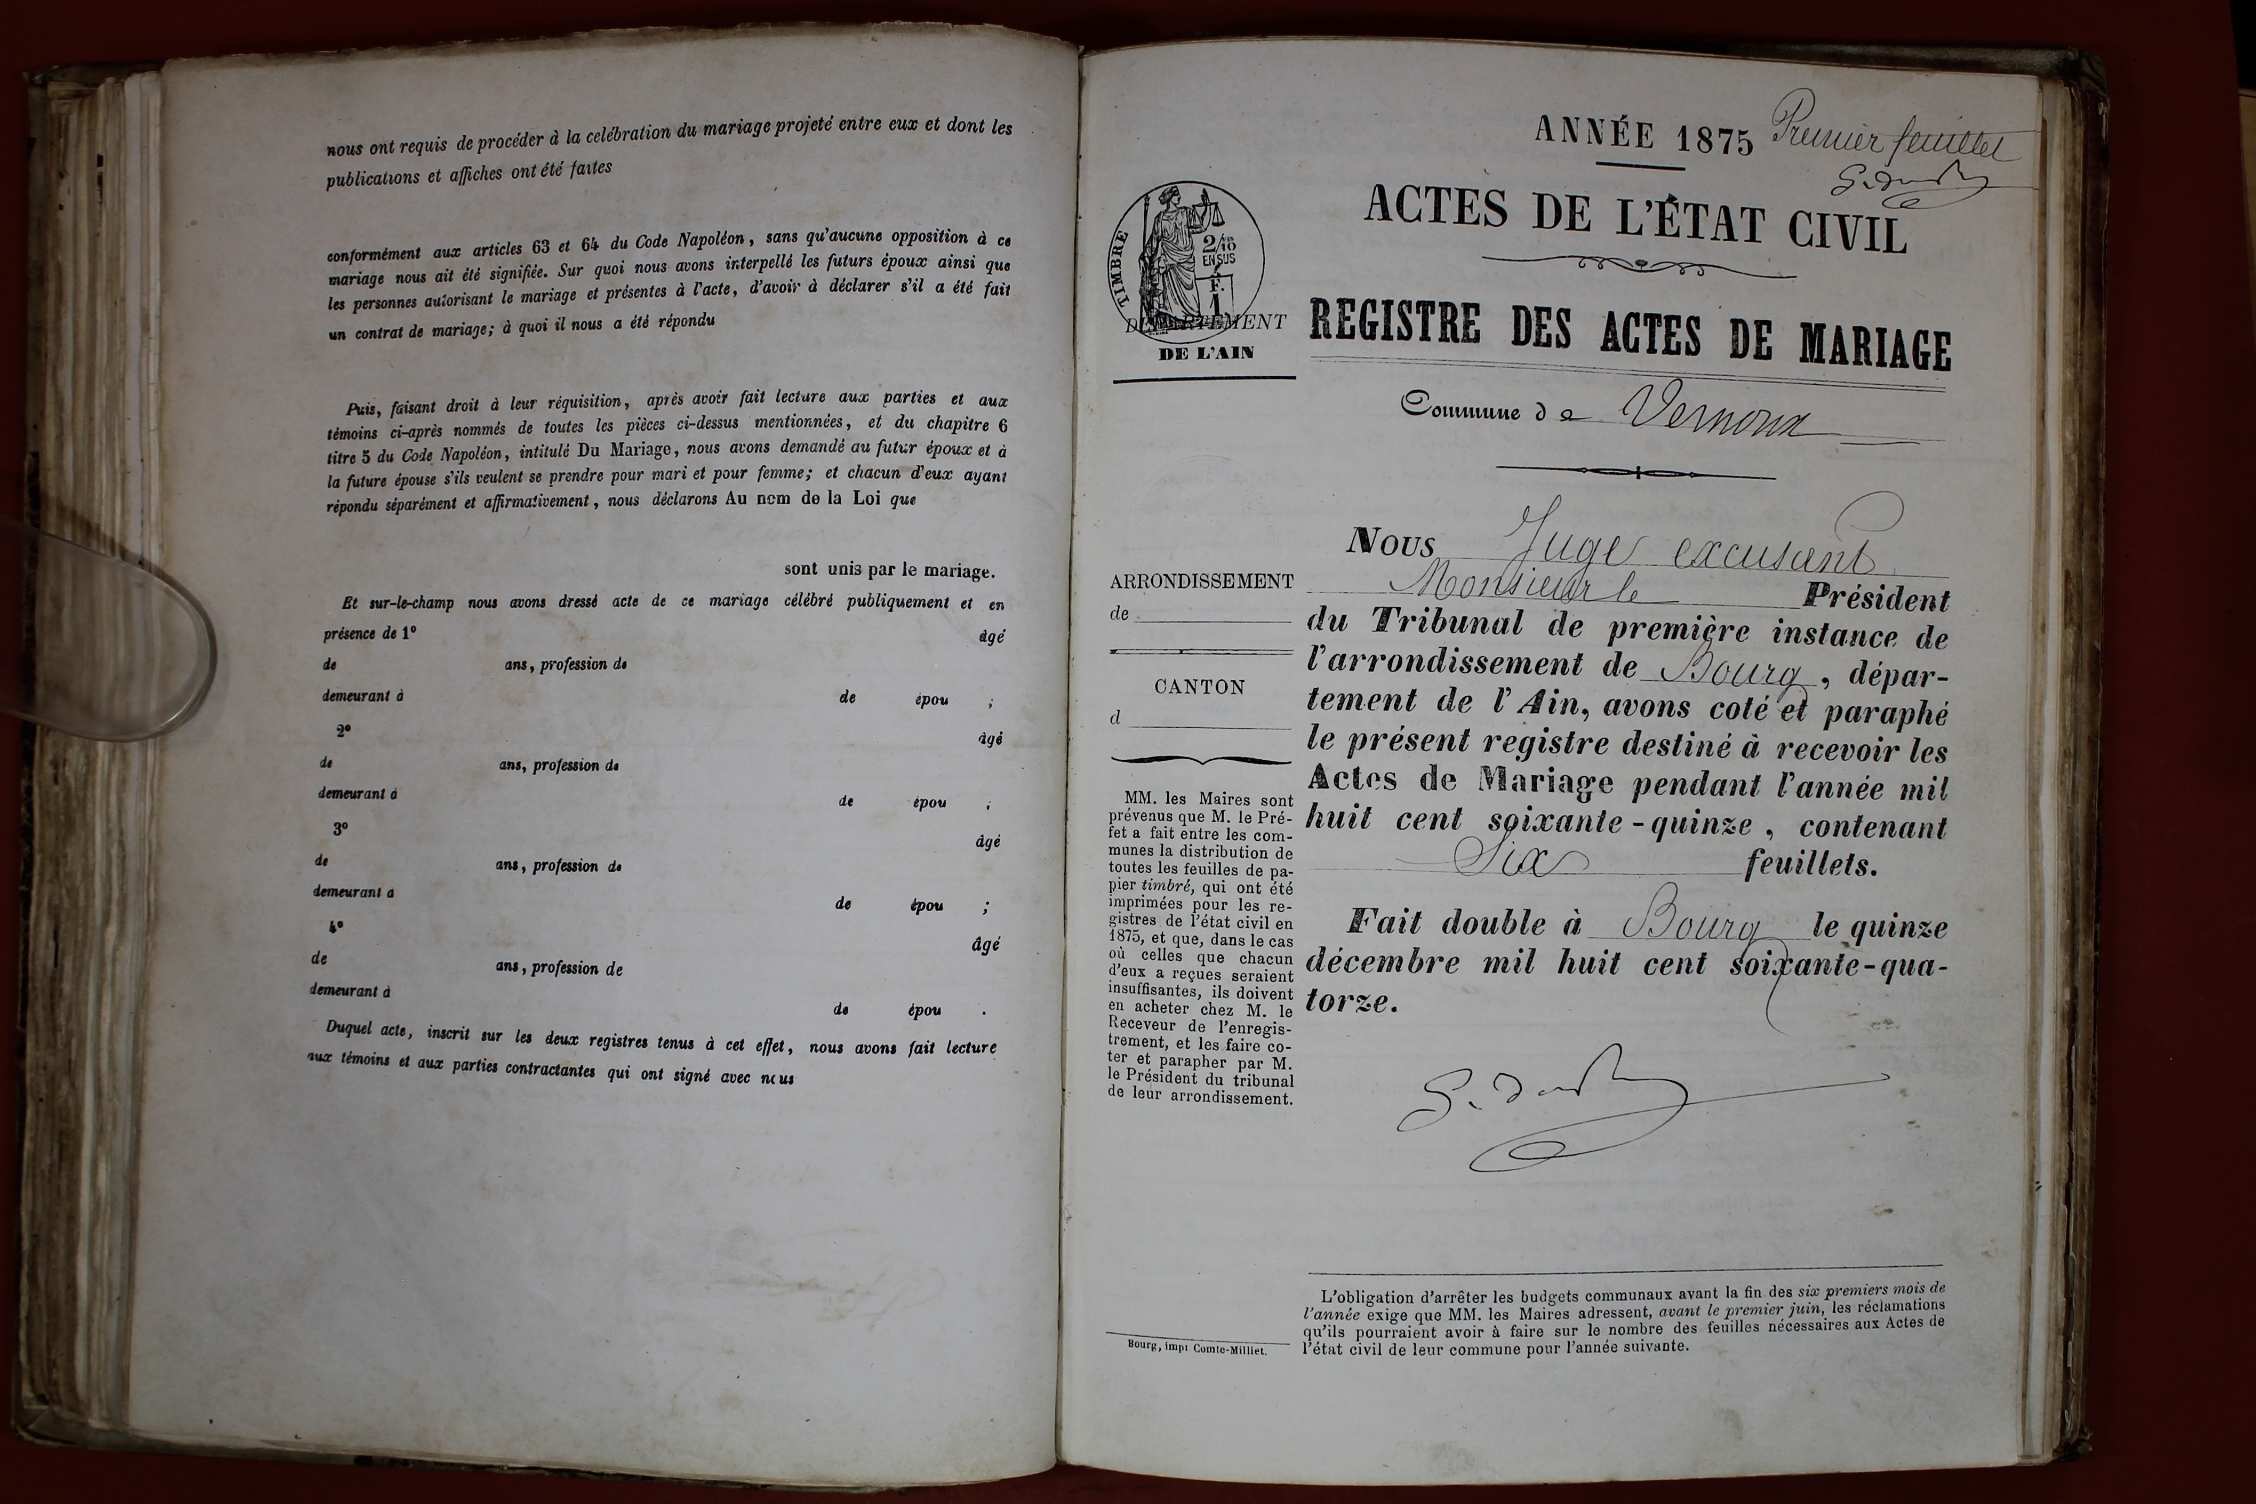 nous ont requis de procéder à la celébration du mariage projeté entre eux et dont les
publications et affiches ont été faites
conformément aux articles 63 et 64 du Code Napoléon, sans qu'aucune opposition à ce
mariage nous ait été signifiée. Sur quoi nous avons interpellé les futurs époux ainsi que
les personnes autorisant le mariage et présentes à l'acte, d'avoir à déclarer s'il a été fait
un contrat de mariage; à quoi il nous a été répondu
Puis, faisant droit à leur réquisition, après avoir fait lecture aux parties et aux
témoins ci-après nommés de toutes les pièces ci-dessus mentionnées, et du chapitre 6
titre 5 du Code Napoléon, intitulé Du Mariage, nous avons demandé au futur époux et à
la future épouse s'ils veulent se prendre pour mari et pour femme; et chacun d'eux ayant
répondu séparément et affirmativement, nous déclarons Au nom de la Loi que
sont unis par le mariage.
Et sur-le-champ nous avons dressé acte de ce mariage célébré publiquement et en
présence de 1° âgé
de ans, profession de
demeurant à de épou ;
2° âgé
de ans, profession de
demeurant à de épou ;
3° âgé
de ans, profession de
demeurant à de épou ;
4° âgé
de ans, profession de
demeurant à de épou .
Duquel acte, inscrit sur les deux registres tenus à cet effet, nous avons fait lecture
aux témoins et aux parties contractantes qui ont signé avec nous
ANNÉE 1875 Premier feuillet
ACTES DE L'ÉTAT CIVIL
TIMBRE
2/10
EN SUS
F.
1
DÉPARTEMENT
DE L'AIN
REGISTRE DES ACTES DE MARIAGE
Commune de Vernoux
ARRONDISSEMENT
de
CANTON
d
MM. les Maires sont
prévenus que M. le Pré-
fet a fait entre les com-
munes la distribution de
toutes les feuilles de pa-
pier timbré, qui ont été
imprimées pour les re-
gistres de l'état civil en
1875, et que, dans le cas
où celles que chacun
d'eux a reçues seraient
insuffisantes, ils doivent
en acheter chez M. le
Receveur de l'enregis-
trement, et les faire co-
ter et parapher par M.
le Président du tribunal
de leur arrondissement.
Bourg, impr Comte-Milliet.
Nous Juge excusant
Monsieur le Président
du Tribunal de première instance de
l'arrondissement de Bourg, dépar-
tement de l'Ain, avons coté et paraphé
le présent registre destiné à recevoir les
Actes de Mariage pendant l'année mil
huit cent soixante-quinze, contenant
Six feuillets.
Fait double à Bourg le quinze
décembre mil huit cent soixante-qua-
torze.
L'obligation d'arrêter les budgets communaux avant la fin des six premiers mois de
l'année exige que MM. les Maires adressent, avant le premier juin, les réclamations
qu'ils pourraient avoir à faire sur le nombre des feuilles nécessaires aux Actes de
l'état civil de leur commune pour l'année suivante.